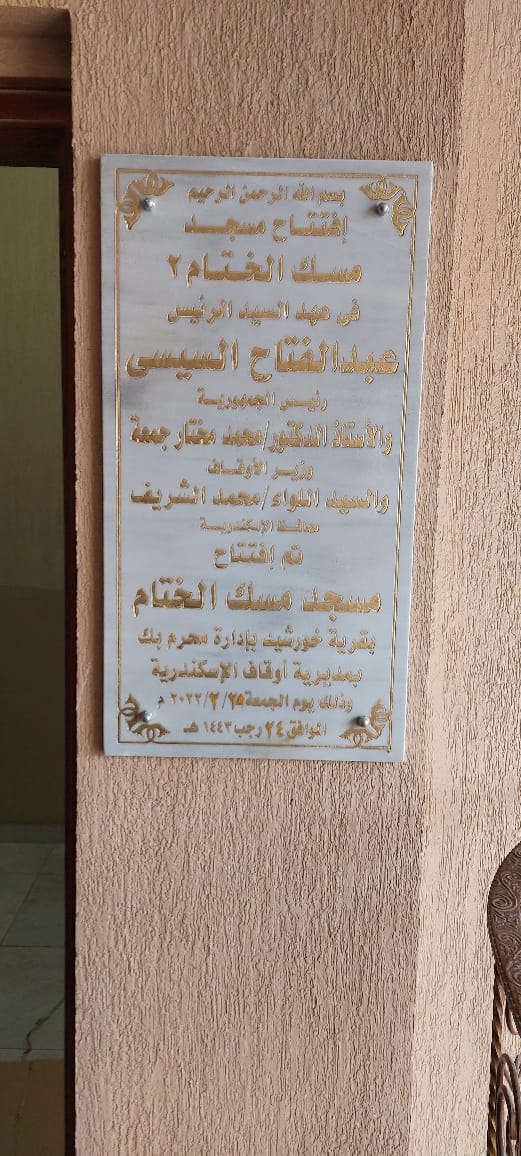 بسم الله الرحمن الرحيم
إفتتاح مسجد
مسك الختام ٢
في عهد السيد الرئيس
عبدالفتاح السيسى
رئيس الجمهورية
والأستاذ الدكتور/محمد مختار جمعة
وزير الأوقاف
والسيد اللواء/محمد الشريف
محافظ الإسكندرية
تم إفتتاح
مسجد مسك الختام
بقرية خورشيد بإدارة محرم بك
بمديرية أوقاف الإسكندرية
وذلك يوم الجمعة ٢٠٢٢/٢/٢٥ م
الموافق ٢٤ رجب ١٤٤٣ هـ